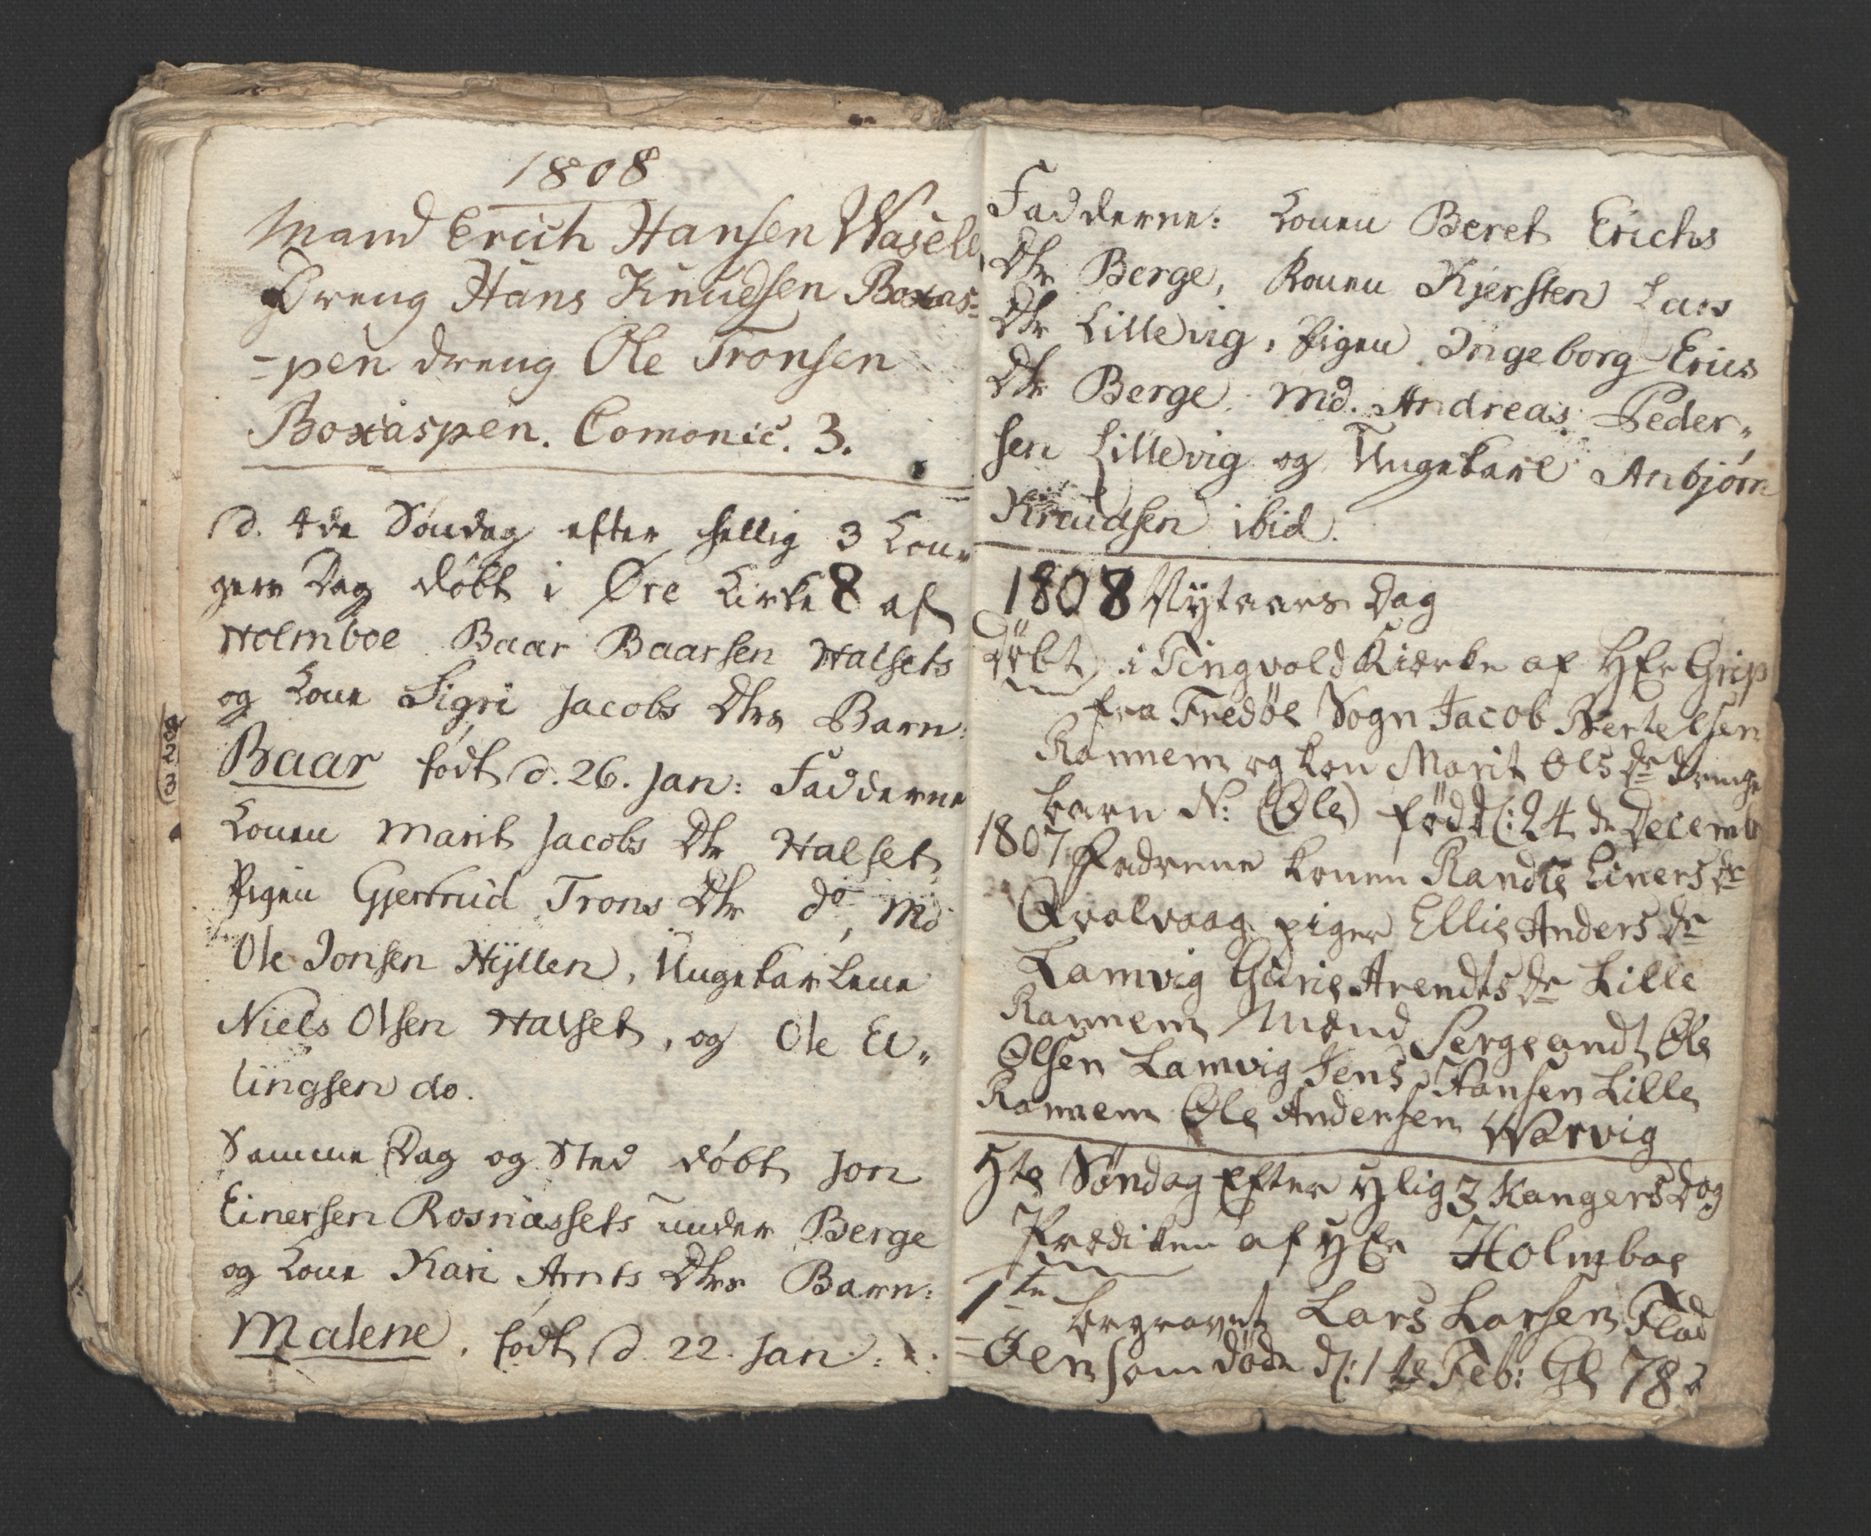 1808
Mand Erich Hansen Waseli,
Dreng Hans Knudsen Boxas=
=pen dreng Ole Tronsen
Boxaspen. Comonic. 3.
d. 4de Søndag efter hellig 3 Kon„
gers Dag døbt i Øre Kirke 8 af
Holmboe Baar Baarsen Halsets
og Kone Sigri Jacobs Dtrs Barn:
Baar født d. 26. Jan: Fadderne
Konen Marit Jacobs Dtr Halset,
Pigen Gjertrud Trons Dtr do, Md
Ole Jonsen Hÿllen, Ungekarlene
Niels Olsen Halset, og Ole El„
lingsen do.
Samme Dag og Sted døbt Jon
Einersen Rosnassets under Berge
og Kone Kari Arnts Dtrs Barn:
Malene, født d. 22. Jan:
Fadderne: Konen Beret Erichs
Dtr Berge, Konen Kjersten Lars
Dtr Lillevig, Pigen Ingeborg Erics
Dtr Berge. Md. Andreas Peder„
sen Lillevig og Ungekarl Anbjørn
Knudsen ibid.
1808 Nÿtaars Dag
døbt i Tingvold Kierke af HEr Grip
fra Fredøe Sogn Jacob Bertelsen
Rannem og kon Marit Ols dr drenge
barn N: (Ole) født d: 24 de Decemb
1807 Fadrene konen Randie Einers dr
Qvalvaag piger Ellie Anders dr
Lamvig Gurie Arendts dr Lille
Rannem Mænd Sergeandt Ole
Olsen Lamvig Jens Hansen Lille
Rannem Ole Andersen Warvig
5te Søndag Efter Hlig 3 Kangers Dag
Prædiken af HEr Holmboe
1te begravet Lars Larsen Flad
=Øen som døde d: 1te Feb: Gl 78